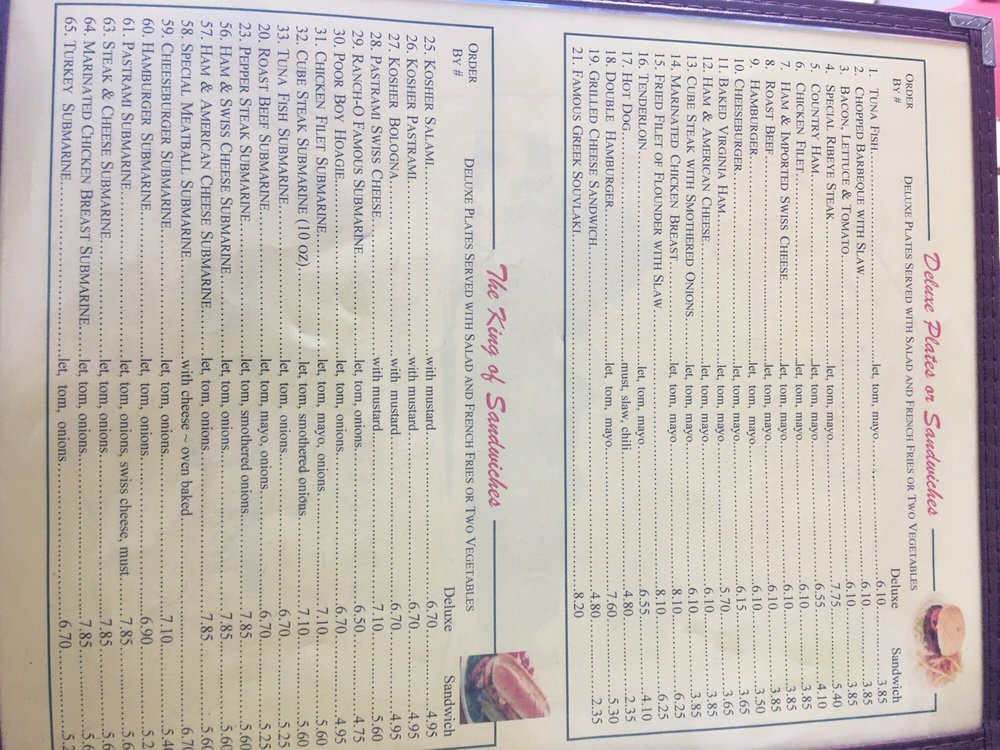 Deluxe Plates or Sandwiches
DELUXE PLATES SERVED WITH SALAD AND FRENCH FRIES OR TWO VEGETABLES
ORDER BY # Deluxe Sandwich
1. TUNA FISH let, tom, mayo 6.10 3.85
2. CHOPPED BARBEQUE WITH SLAW 6.10 3.85
3. BACON, LETTUCE & TOMATO 6.10 3.85
4. SPECIAL RIBEYE STEAK let, tom, mayo 7.75 5.40
5. COUNTRY HAM 6.55 4.10
6. CHICKEN FILET let, tom, mayo 6.10 3.85
7. HAM & IMPORTED SWISS CHEESE let, tom, mayo 6.10 3.85
8. ROAST BEEF let, tom, mayo 6.10 3.85
9. HAMBURGER let, tom, mayo 6.10 3.50
10. CHEESEBURGER let, tom, mayo 6.15 3.65
11. BAKED VIRGINIA HAM let, tom, mayo 5.70 3.65
12. HAM & AMERICAN CHEESE let, tom, mayo 6.10 3.85
13. CUBE STEAK WITH SMOTHERED ONIONS let, tom, mayo 6.10 3.85
14. MARINATED CHICKEN BREAST let, tom, mayo 8.10 6.25
15. FRIED FILET OF FLOUNDER WITH SLAW 8.10 6.25
16. TENDERLOIN let, tom, mayo 6.55 4.10
17. HOT DOG must, slaw, chili 4.80 2.35
18. DOUBLE HAMBURGER let, tom, mayo 7.60 5.30
19. GRILLED CHEESE SANDWICH 4.80 2.35
21. FAMOUS GREEK SOUVLAKI 8.20
The King of Sandwiches
DELUXE PLATES SERVED WITH SALAD AND FRENCH FRIES OR TWO VEGETABLES
ORDER BY # Deluxe Sandwich
25. KOSHER SALAMI with mustard 6.70 4.95
26. KOSHER PASTRAMI with mustard 6.70 4.95
27. KOSHER BOLOGNA with mustard 6.70 4.95
28. PASTRAMI SWISS CHEESE with mustard 7.10 5.60
29. RANCH-O FAMOUS SUBMARINE let, tom, onions 6.50 4.75
30. POOR BOY HOAGIE let, tom, onions 6.70 4.95
31. CHICKEN FILET SUBMARINE let, tom, mayo, onions 7.10 5.60
32. CUBE STEAK SUBMARINE (10 OZ) let, tom, smothered onions 7.10 5.60
33. TUNA FISH SUBMARINE let, tom, onions 6.70 5.25
20. ROAST BEEF SUBMARINE let, tom, mayo, onions 6.70 5.25
23. PEPPER STEAK SUBMARINE let, tom, smothered onions 7.85 5.60
56. HAM & SWISS CHEESE SUBMARINE let, tom, onions 7.85 5.60
57. HAM & AMERICAN CHEESE SUBMARINE let, tom, onions 7.85 5.60
58. SPECIAL MEATBALL SUBMARINE with cheese ~ oven baked 6.70
59. CHEESEBURGER SUBMARINE let, tom, onions 7.10 5.4
60. HAMBURGER SUBMARINE let, tom, onions 6.90 5.2
61. PASTRAMI SUBMARINE let, tom, onions, swiss cheese, must 7.85 5.6
63. STEAK & CHEESE SUBMARINE let, tom, onions 7.85 5.6
64. MARINATED CHICKEN BREAST SUBMARINE let, tom, onions 7.85 5.6
65. TURKEY SUBMARINE let, tom, onions 6.70 5.2